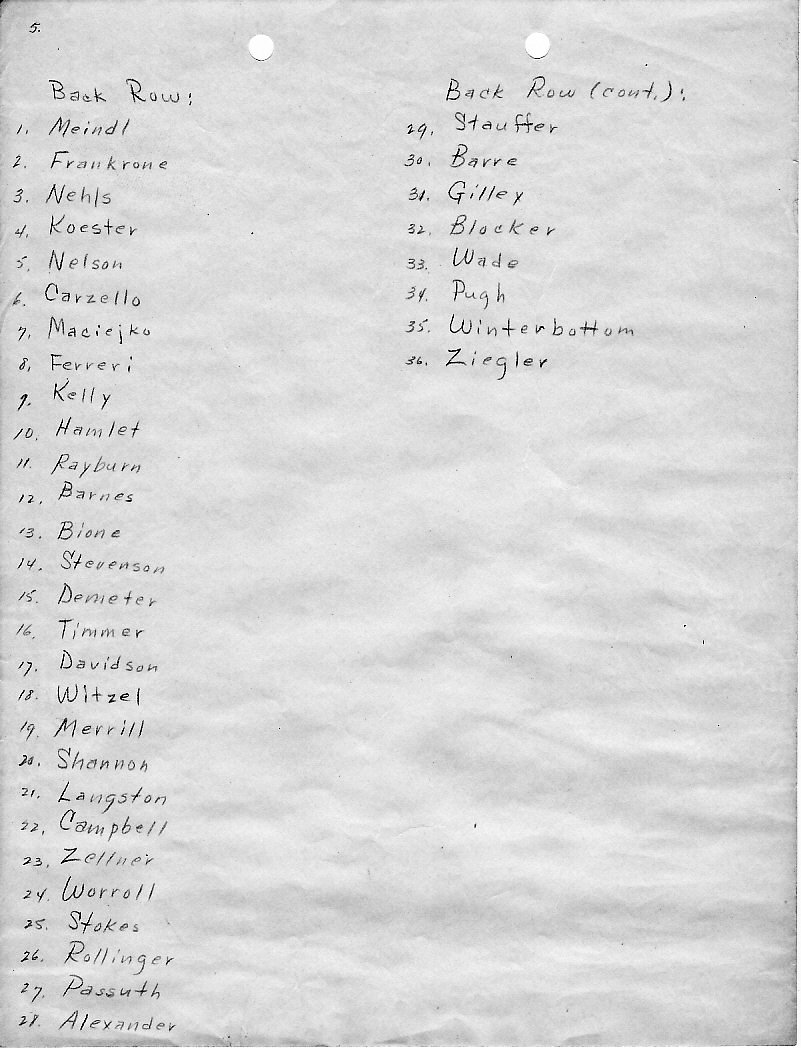 5.
Back Row:
1. Meindl
2. Frankrone
3. Nehls
4. Koester
5. Nelson
6. Carzello
7. Maciejko
8. Ferreri
9. Kelly
10. Hamlet
11. Rayburn
12. Barnes
13. Bione
14. Stevenson
15. Demeter
16. Timmer
17. Davidson
18. Witzel
19. Merrill
20. Shannon
21. Langston
22. Campbell
23. Zellner
24. Worroll
25. Stokes
26. Rollinger
27. Passuth
28. Alexander
Back Row (cont.):
29. Stauffer
30. Barre
31. Gilley
32. Blocker
33. Wade
34. Pugh
35. Winterbottom
36. Ziegler